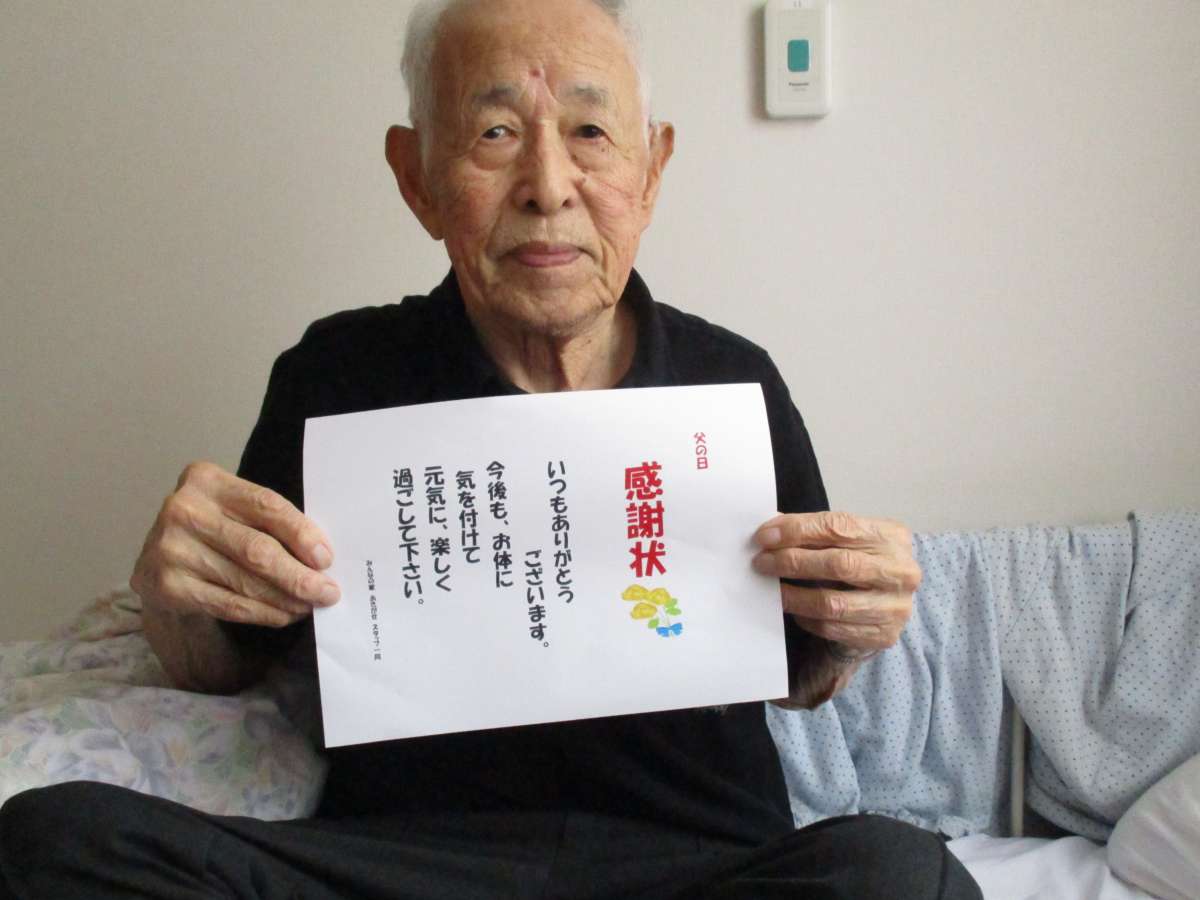 父の日
感謝状
いつもありがとう
ございます。
今後も、お体に
気を付けて
元気に、楽しく
過ごして下さい。
みんなの家 あきがせ スタッフ一同
Panasonic